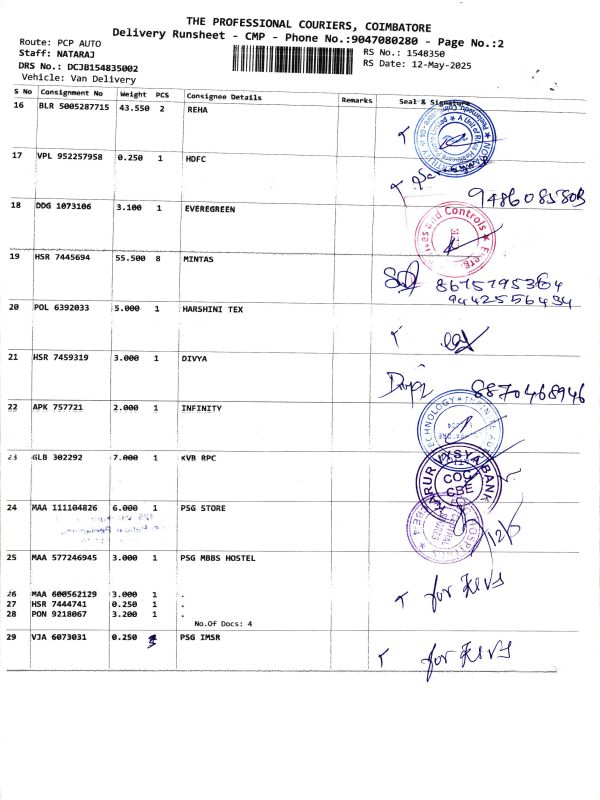 THE PROFESSIONAL COURIERS, COIMBATORE
Delivery Runsheet - CMP - Phone No.:9047080280 - Page No.:2
Route: PCP AUTO
Staff: NATARAJ
DRS No.: DCJB154835002
Vehicle: Van Delivery
RS No.: 1548350
RS Date: 12-May-2025
S No Consignment No Weight PCS Consignee Details Remarks Seal & Signature
16 BLR 5005287715 43.550 2 REHA
17 VPL 952257958 0.250 1 HDFC
9486085803
18 DDG 1073106 3.100 1 EVEREGREEN
ives and Controls
19 HSR 7445694 55.500 8 MINTAS
8675795364
9442556434
20 POL 6392033 5.000 1 HARSHINI TEX
21 HSR 7459319 3.000 1 DIVYA
8870468946
22 APK 757721 2.000 1 INFINITY
TECHNOLOGY
23 GLB 302292 7.000 1 KVB RPC
KARUR VYSYA BANK
COC
CBE
24 MAA 111104826 6.000 1 PSG STORE
12/5
25 MAA 577246945 3.000 1 PSG MBBS HOSTEL
26 MAA 600562129 3.000 1 .
27 HSR 7444741 0.250 1 .
28 PON 9218067 3.200 1 .
for
No.Of Docs: 4
29 VJA 6073031 0.250 PSG IMSR
for